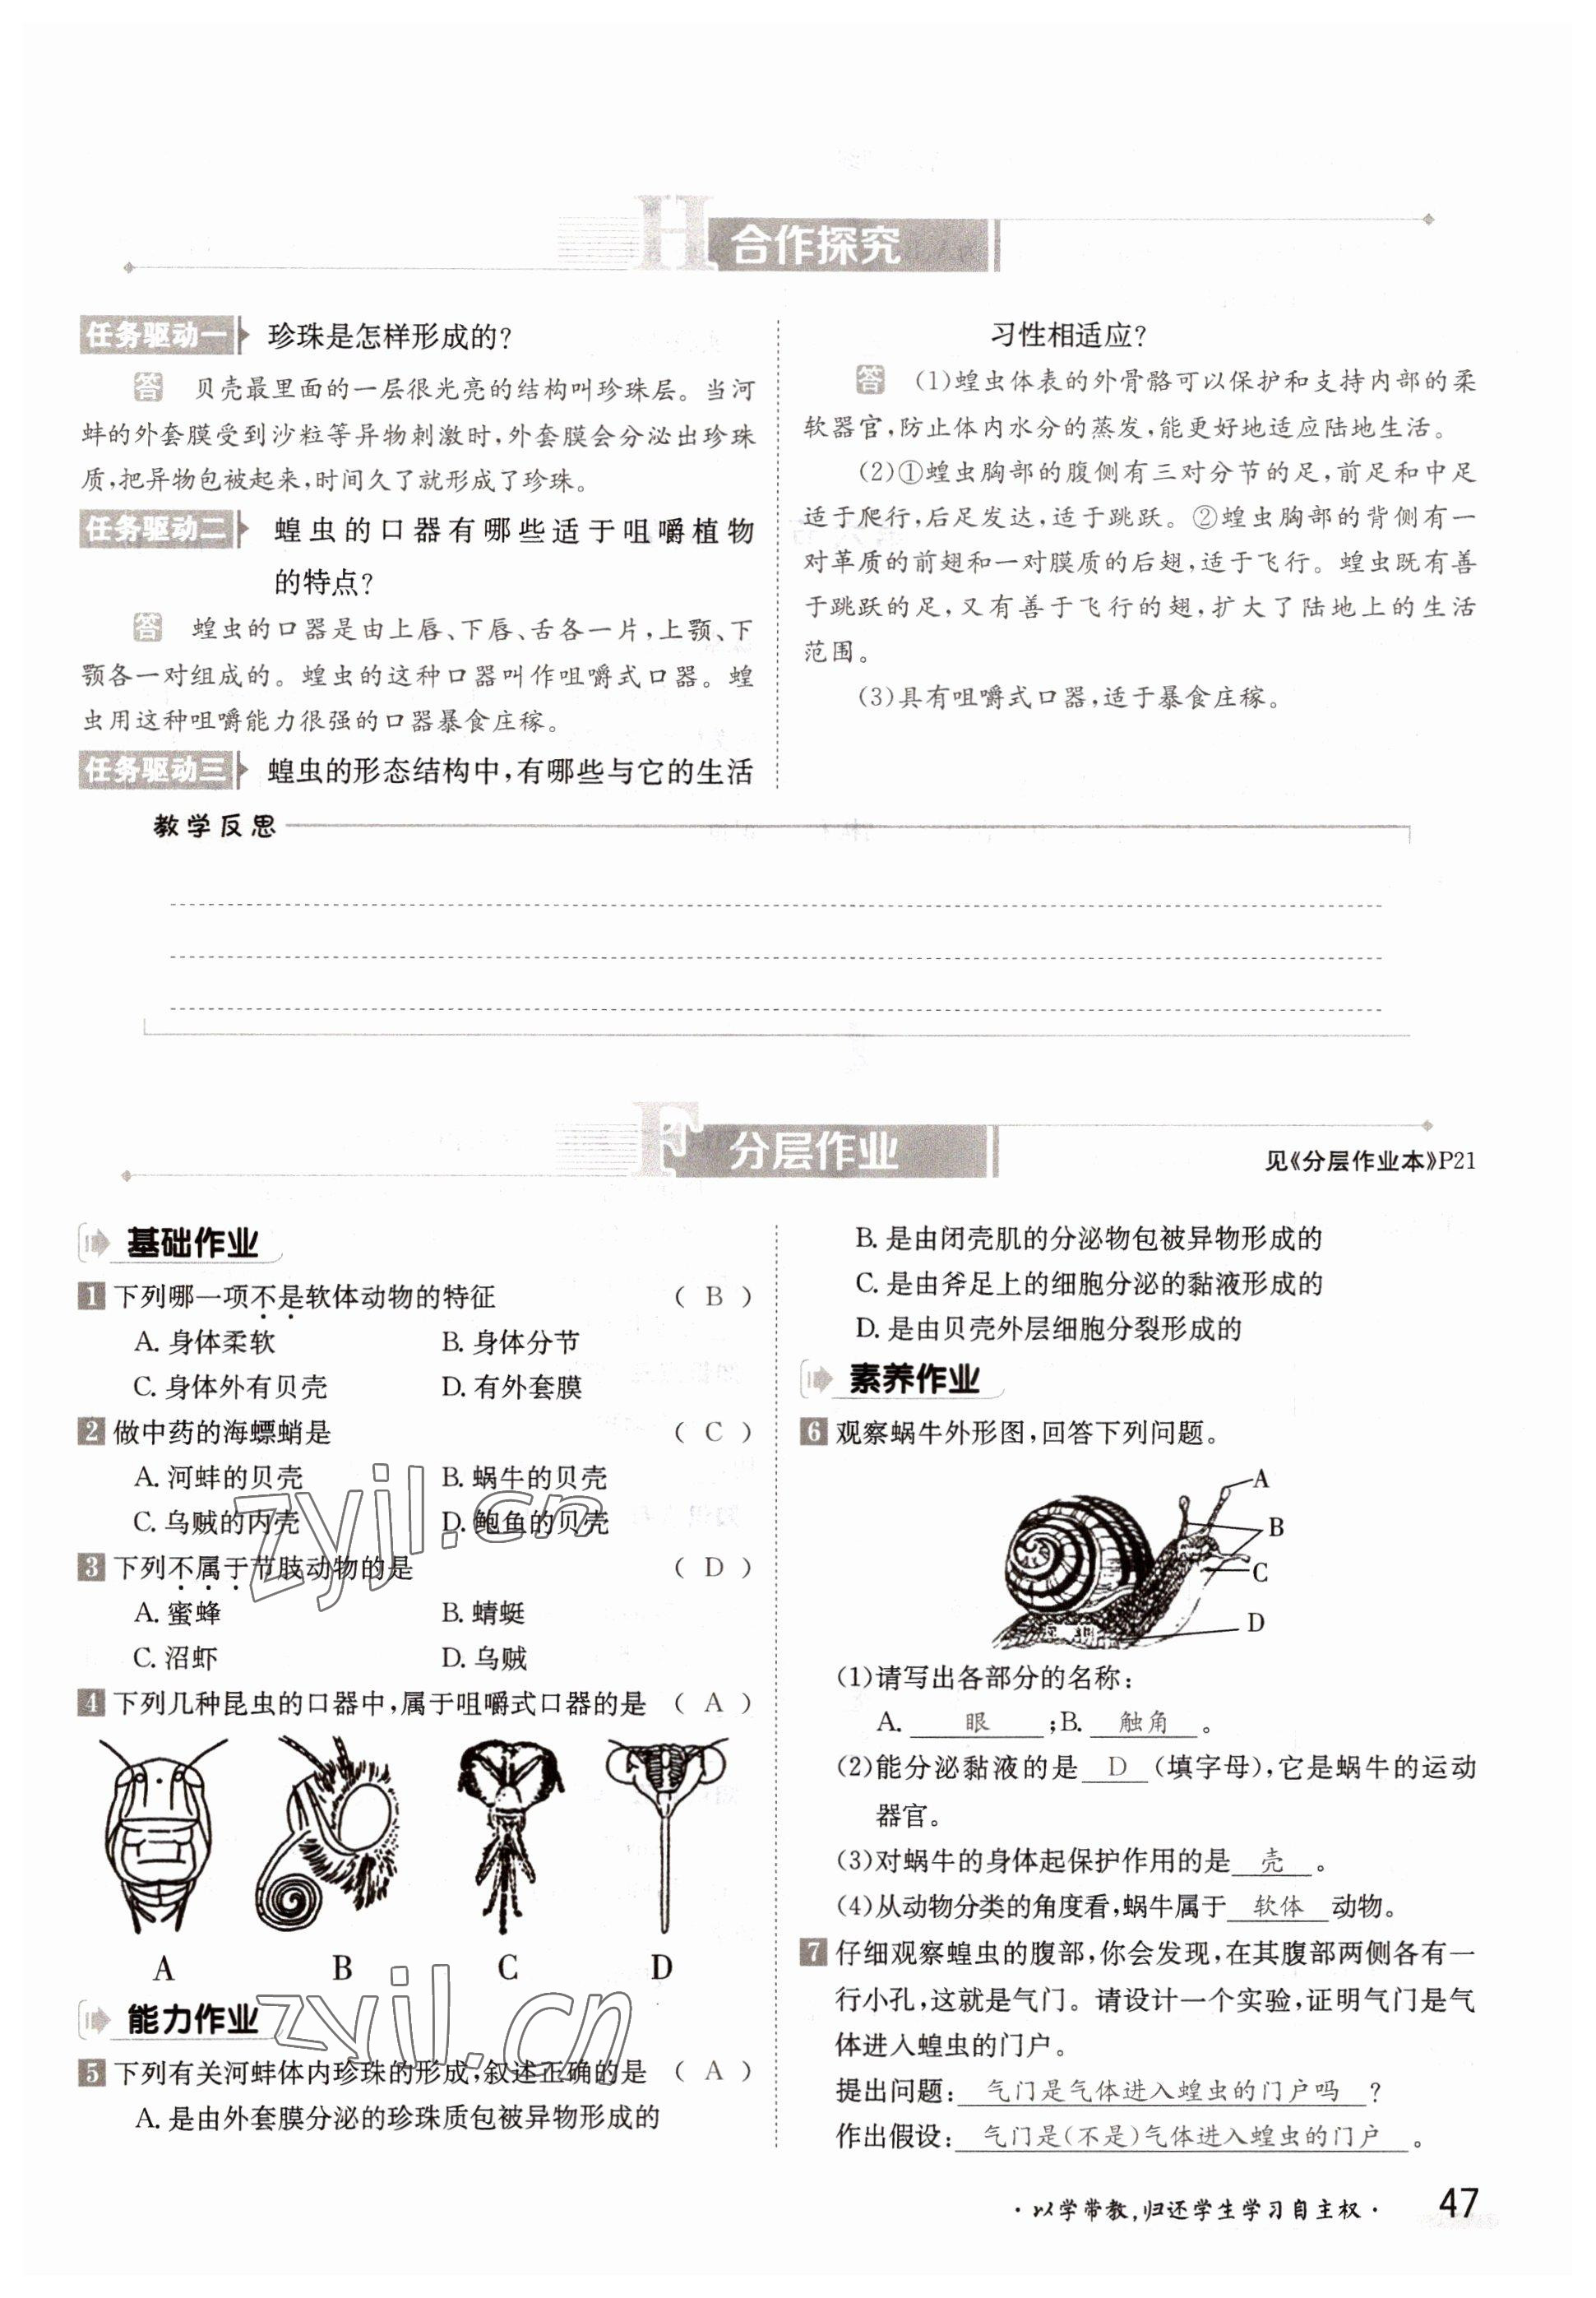 H 合作探究
任务驱动一 珍珠是怎样形成的?
答 贝壳最里面的一层很光亮的结构叫珍珠层。当河
蚌的外套膜受到沙粒等异物刺激时,外套膜会分泌出珍珠
质,把异物包被起来,时间久了就形成了珍珠。
任务驱动二 蝗虫的口器有哪些适于咀嚼植物
的特点?
答 蝗虫的口器是由上唇、下唇、舌各一片,上颚、下
颚各一对组成的。蝗虫的这种口器叫作咀嚼式口器。蝗
虫用这种咀嚼能力很强的口器暴食庄稼。
任务驱动三 蝗虫的形态结构中,有哪些与它的生活
习性相适应?
答 (1)蝗虫体表的外骨骼可以保护和支持内部的柔
软器官,防止体内水分的蒸发,能更好地适应陆地生活。
(2)①蝗虫胸部的腹侧有三对分节的足,前足和中足
适于爬行,后足发达,适于跳跃。②蝗虫胸部的背侧有一
对革质的前翅和一对膜质的后翅,适于飞行。蝗虫既有善
于跳跃的足,又有善于飞行的翅,扩大了陆地上的生活
范围。
(3)具有咀嚼式口器,适于暴食庄稼。
教学反思
F 分层作业
见《分层作业本》P21
基础作业
1 下列哪一项不是软体动物的特征 ( B )
A. 身体柔软 B. 身体分节
C. 身体外有贝壳 D. 有外套膜
2 做中药的海螵蛸是 ( C )
A. 河蚌的贝壳 B. 蜗牛的贝壳
C. 乌贼的内壳 D. 鲍鱼的贝壳
3 下列不属于节肢动物的是 ( D )
A. 蜜蜂 B. 蜻蜓
C. 沼虾 D. 乌贼
4 下列几种昆虫的口器中,属于咀嚼式口器的是 ( A )
A B C D
能力作业
5 下列有关河蚌体内珍珠的形成,叙述正确的是 ( A )
A. 是由外套膜分泌的珍珠质包被异物形成的
B. 是由闭壳肌的分泌物包被异物形成的
C. 是由斧足上的细胞分泌的黏液形成的
D. 是由贝壳外层细胞分裂形成的
素养作业
6 观察蜗牛外形图,回答下列问题。
A
B
C
D
(1)请写出各部分的名称:
A. 眼 ;B. 触角 。
(2)能分泌黏液的是 D (填字母),它是蜗牛的运动
器官。
(3)对蜗牛的身体起保护作用的是 壳 。
(4)从动物分类的角度看,蜗牛属于 软体 动物。
7 仔细观察蝗虫的腹部,你会发现,在其腹部两侧各有一
行小孔,这就是气门。请设计一个实验,证明气门是气
体进入蝗虫的门户。
提出问题: 气门是气体进入蝗虫的门户吗 ?
作出假设: 气门是(不是)气体进入蝗虫的门户 。
·以学带教,归还学生学习自主权· 47
zyjl.cn
zyjl.cn